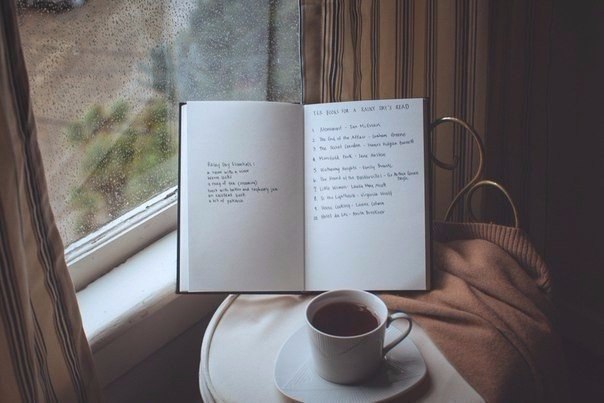 Rainy Day Essentials:
a room with a view
warm socks
a mug of tea
toast with butter and raspberry jam
an excellent book
a bit of patience
TEN BOOKS FOR A RAINY DAY'S READ
1 Atonement - Ian McEwan
2 The End of the Affair - Graham Greene
3 The Secret Garden - Frances Hodgson Burnett
4 Mansfield Park - Jane Austen
5 Wuthering Heights - Emily Bronte
6 The Hound of the Baskervilles - Sir Arthur Conan
Doyle
7 Little Women - Louisa May Alcott
8 To the Lighthouse - Virginia Woolf
9 Home Cooking - Laurie Colwin
10 Hotel du Lac - Anita Brookner